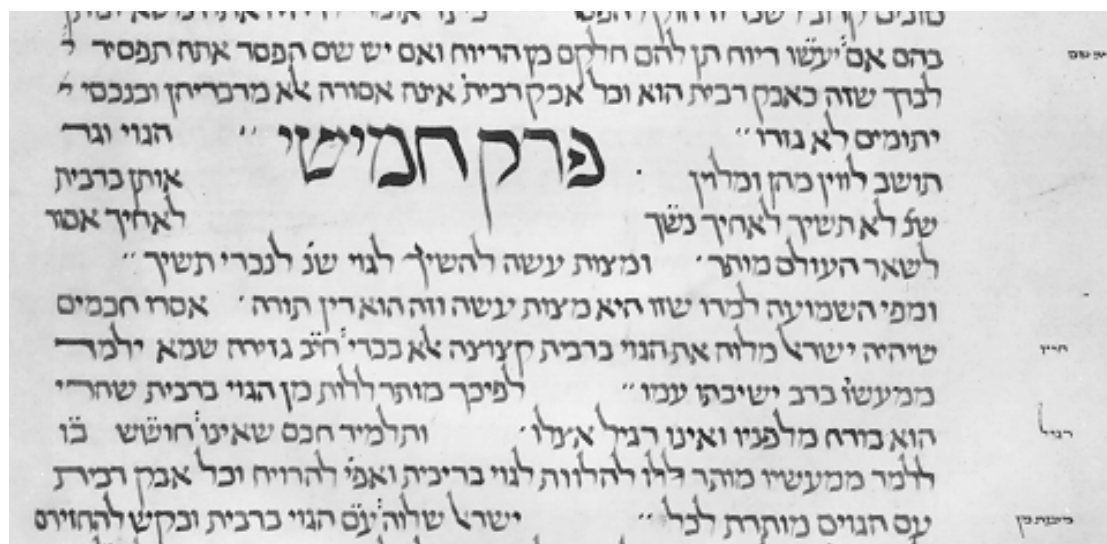 בהם אם יעשו ריוח תן להם חלקם מן הריוח ואם יש שם הפסר אתה תפסיד
לבדך שזה כאבק רבית הוא וכל אבק רבית אינה אסורה לא מדבריהן ובנכסי
יתומים לא גזרו״
פרק חמישי
הגוי וגר
תושב לווין מהן ומלוין
אותן ברבית
שנ׳ לא תשיך לאחיך נשך
לאחיך אסור
לשאר העולם מותר׳ ומצות עשה להשיך לגוי שנ׳ לנכרי תשיך״
ומפי השמועה למדו שזו היא מצות עשה וזה הוא דין תורה׳ אסרו חכמים
שיהיה ישראל מלוה את הגוי ברבית קצוצה לא בכדי חייו גזירה שמא ילמד
ממעשיו ברב ישיבתו עמו״ לפיכך מותר ללות מן הגוי ברבית שהרי
הוא בורח מלפניו ואינו רגיל אצלו׳ ותלמיד חכם שאינו חושש בו
ללמד ממעשיו מותר לו להלוות לגוי בריבית ואפי׳ להרויח וכל אבק רבית
עם הגוים מותרת לכל״ ישראל שלוה עם הגוי ברבית ובקש להחזירם